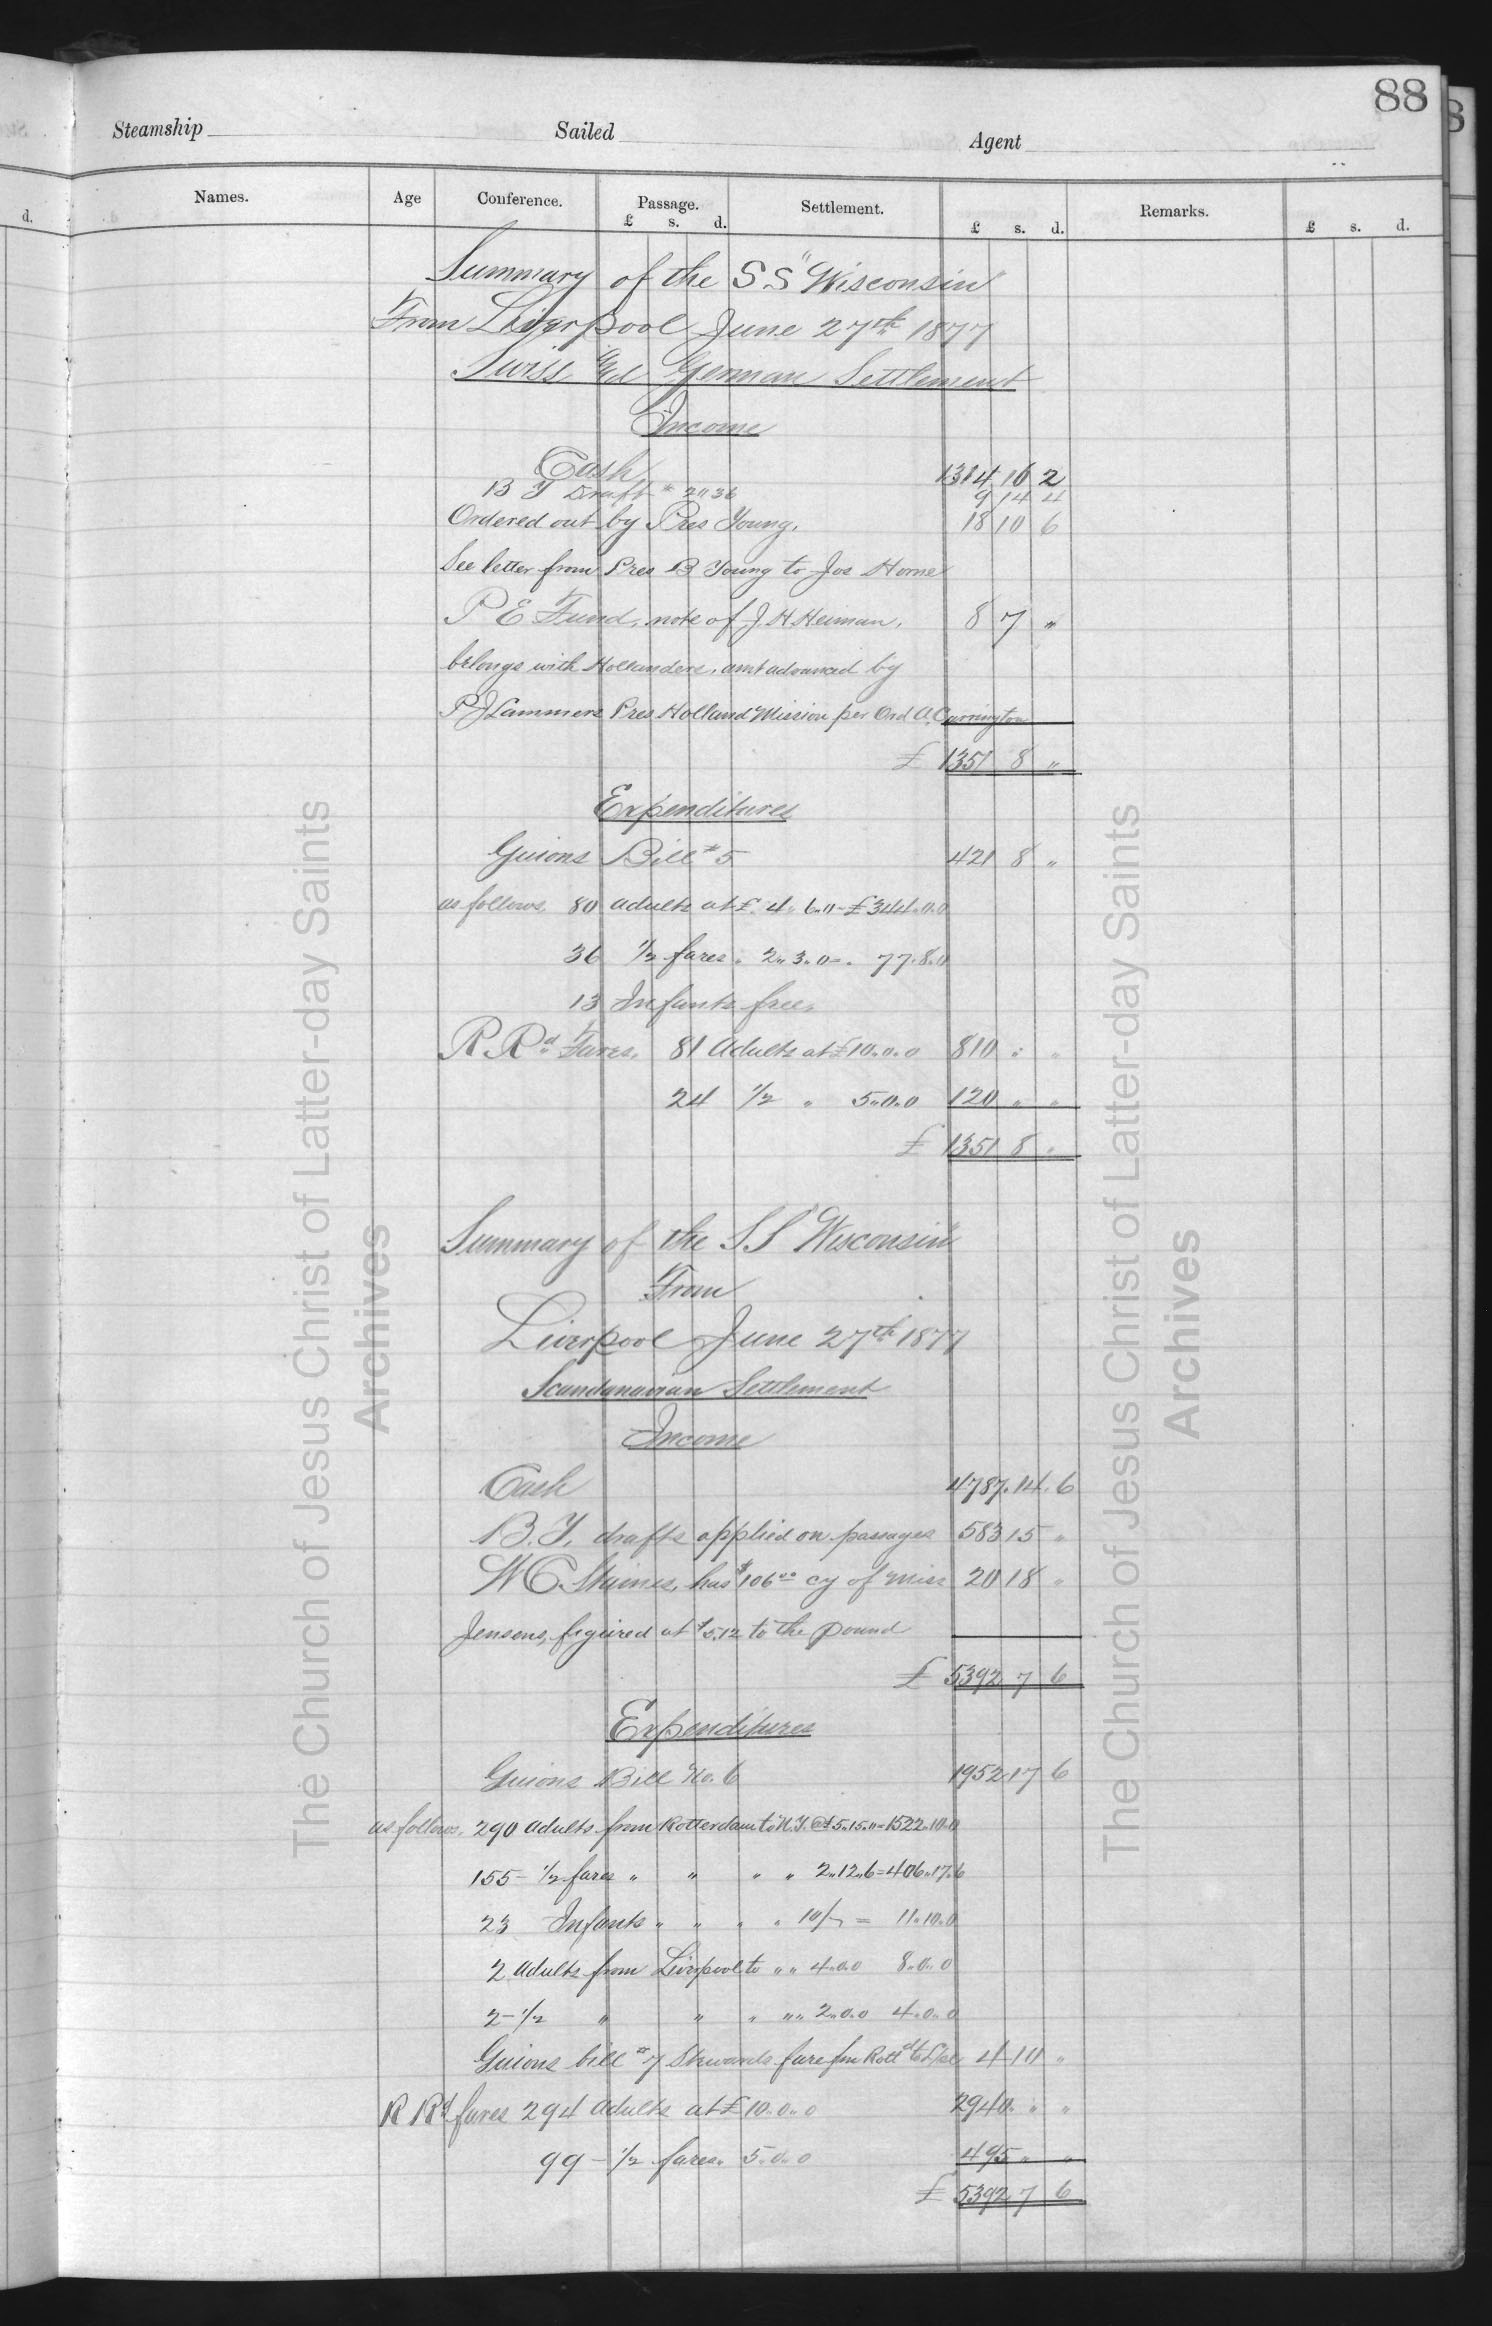 88
Steamship Sailed Agent
Names. Age Conference. Passage. Settlement. Remarks.
d. £ s. d. £ s. d. £ s. d.
Summary of the S.S "Wisconsin"
From Liverpool June 27th 1877
Swiss and German Settlement
Income
Cash 1314 16 2
B Y Draft # 2436 9 14 4
Ordered out by Pres Young. 18 10 6
See letter from Pres B Young to Jos Horne
P E Fund, note of J. H. Heiman. 8 7 "
belongs with Hollanders, amt advanced by
P J Lammers Pres Holland Mission per Ord A. Carrington
£ 1351 8 "
Expenditures
Guions Bill #5 421 8 "
as follows 80 adults at £ 4. 6.0 - £344.0.0
36 1/2 fares " 2" 3"0 = " 77.8.0
13 Infants free.
R. Rd Fares. 81 Adults at £10.0.0 810 " "
24 1/2 " 5.0.0 120 " "
£ 1351 8 "
Summary of the S S "Wisconsin"
From
Liverpool June 27th 1877
Scandanavian Settlement
Income
Cash 4787.14.6
B. Y. drafts applied on passages 583 15 "
W C Staines, has $106.00 cy of Miss 20 18 "
Jensens, figured at $5.12 to the pound
£ 5392 7 6
Expenditures
Guions Bill No. 6 1952 17 6
as follows. 290 adults from Rotterdam to N.Y. @ £5.5.0 = 1522.10.0
155 - 1/2 fares " " " " 2.12.6 = 406.17.6
23 Infants " " " " 10/- = 11.10.0
2 adults from Liverpool to " " 4.0.0 8.0.0
2 - 1/2 " " " " " 2.0.0 4.0.0
Guions bill #7 Stewards fare fm Rottd to L/pl 4 10 "
R Rd fares 294 adults at £10.0.0 2940 " "
99 - 1/2 fares. 5.0.0 495 " "
£ 5392 7 6
The Church of Jesus Christ of Latter-day Saints
Archives
The Church of Jesus Christ of Latter-day Saints
Archives